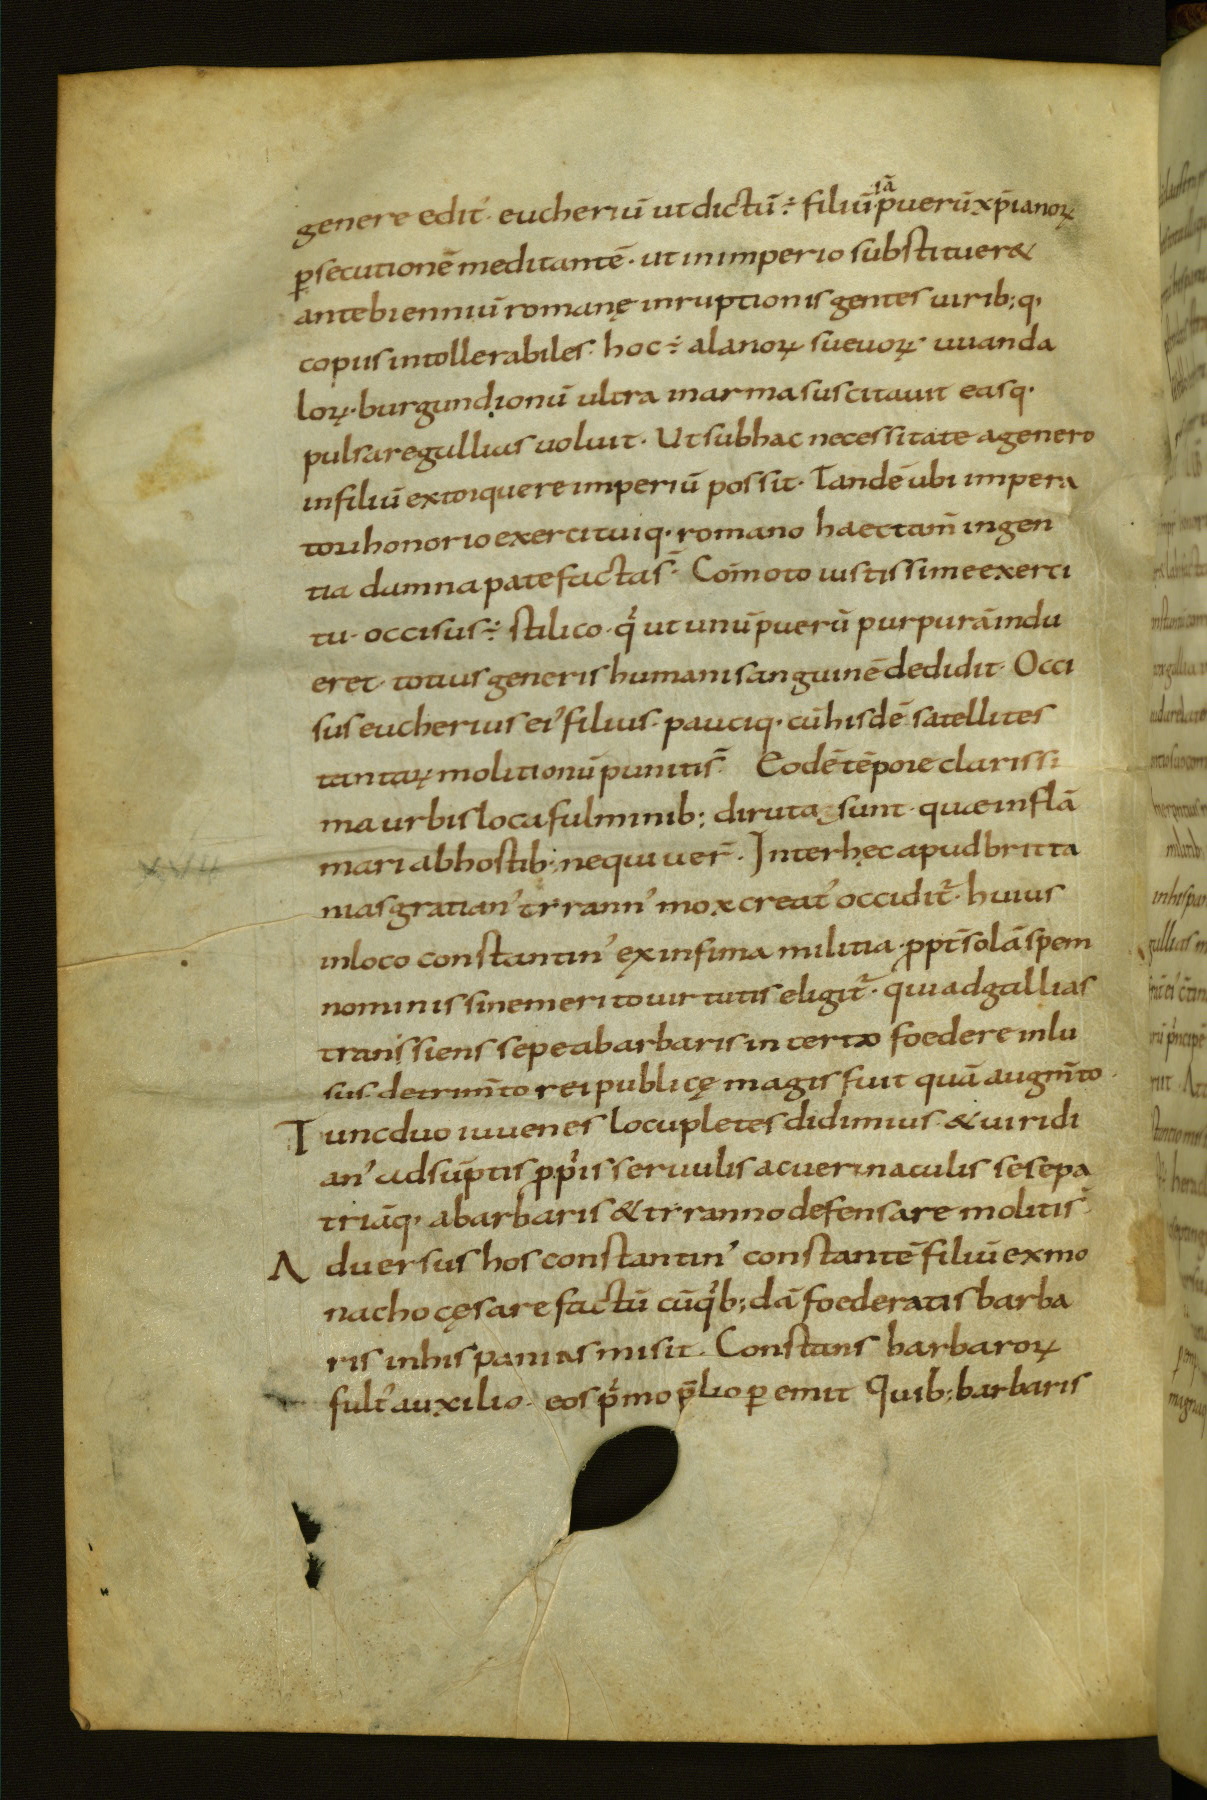 genere edit᾿. eucheriū ut dictū ÷ filiū iā puerū xp̄ianoꝝ
ꝑsecutionē meditantē. ut in imperio substituer&
ante bienniū romanę inruptionis gentes uirib; q,
copiis intollerabiles. hoc ÷ alanoꝝ sueuoꝝ uuanda
loꝝ. burgundionū ultra in arma suscitauit easq.
pulsare gallias uoluit. Ut sub hac necessitate agenero
in filiū extorquere imperiū possit. Tandē ubi impera
tori honorio exercituiq. romano haec tam̄ ingen
tia damna patefactas̄. Com̄oto iustissime exerci
tu. occisus ÷ stilico. qͥ ut unū puerū purpurā indu
eret. totius generis humani sanguinē dedidit. Occi
sus eucherius ei᾿ filius. pauciq. cū hisdē satellites
tantaꝝ molitionū punitis̄ Eodē tēpore clarissi
ma urbis loca fulminib; diruta sunt. quae inflā
mari ab hostib; nequiuer̄. Inter hęc apud britta
nias gratian᾿ tyrann᾿ mox creat᾿ occidit᷑. huius
inloco constantin᾿ ex infima militia. ꝓpt̄ solā spem
nominis sine merito uirtutis eligit᷑. qui ad gallias
transsiens sepe abarbaris incerto foedere inlu
sus. detrim̄to rei publicę magis fuit quā augm̄to.
Tunc duo iuuenes locupletes didimius & uiridi
an᾿ adsūptis ꝓpͥis seruulis ac uernaculis sese pa
triāq, abarbaris & tyranno defensare molitis̄
Aduersus hos constantin᾿ constantē filiū ex mo
nacho cęsare factū cū qͥb;dā foederatis barba
ris in hispanias misit. Constans barbaroꝝ
fult᾿ auxilio. eos pͥmo p̄lio ꝑemit Quib; barbaris